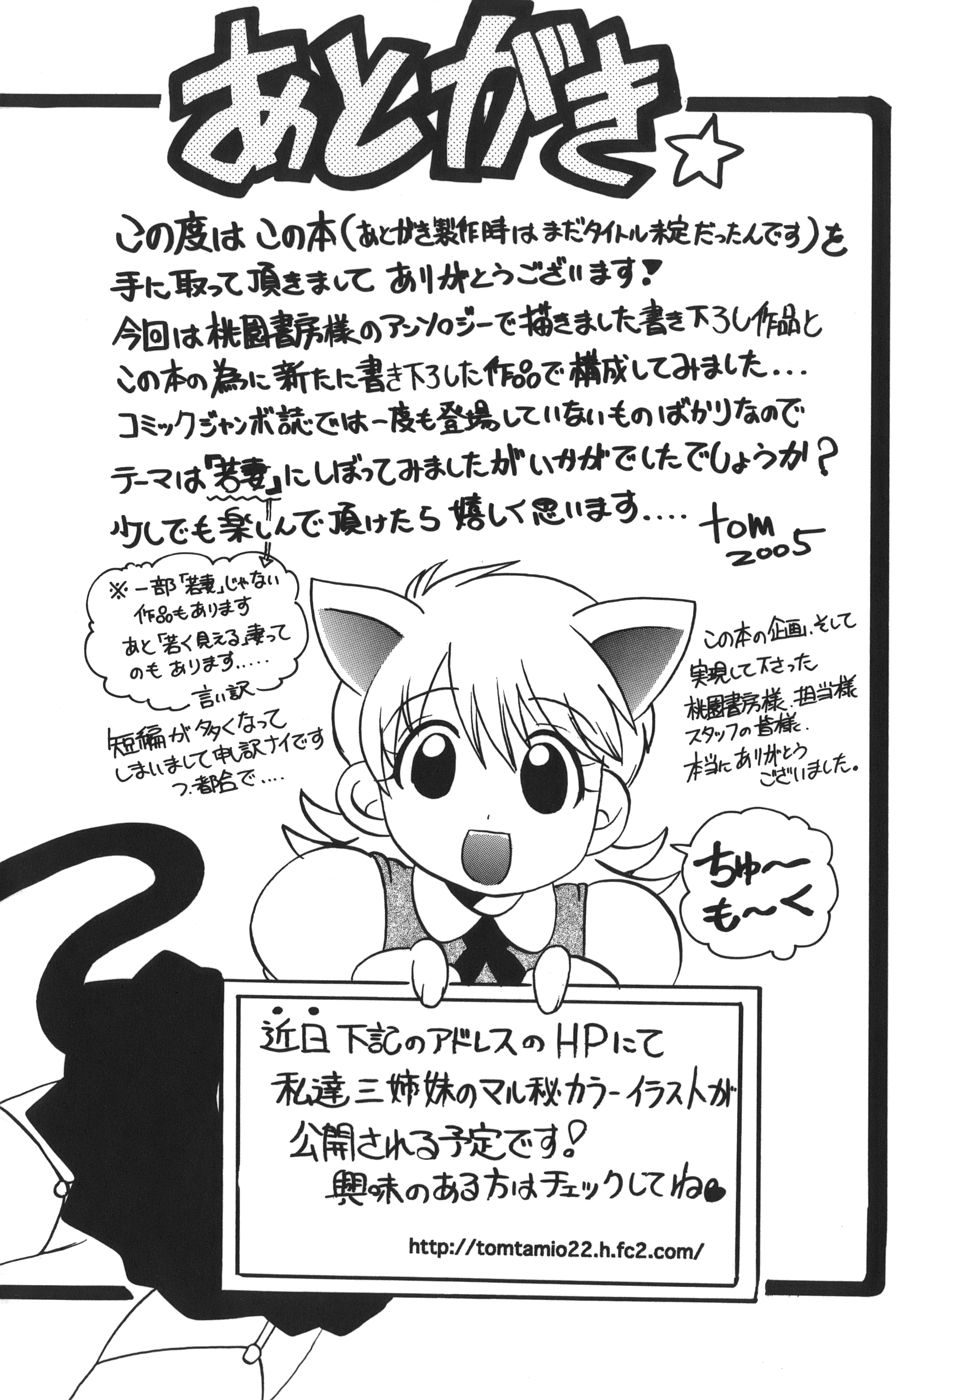 あとがき☆
この度は この本(あとがき製作時はまだタイトル未定だったんです)を
手に取って頂きまして ありがとうございます!
今回は桃園書房様のアンソロジーで描きました書き下ろし作品と
この本の為に新たに書き下ろした作品で構成してみました...
コミックジャンボ誌では一度も登場していないものばかりなので
テーマは「若妻」にしぼってみましたがいかがでしたでしょうか?
少しでも楽しんで頂けたら嬉しく思います....
tom
2005
※一部「若妻」じゃない
作品もあります
あと「若く見える」妻って
のも あります.....
言い訳
短編が多くなって
しまいまして申し訳ナイです
つ都合で....
この本の企画、そして
実現して下さった
桃園書房様、担当様
スタッフの皆様、
本当にありがとう
ございました。
ちゅ〜
も〜く
近日下記のアドレスのHPにて
私達三姉妹のマル秘カラーイラストが
公開される予定です!
興味のある方はチェックしてね♥
http://tomtamio22.h.fc2.com/